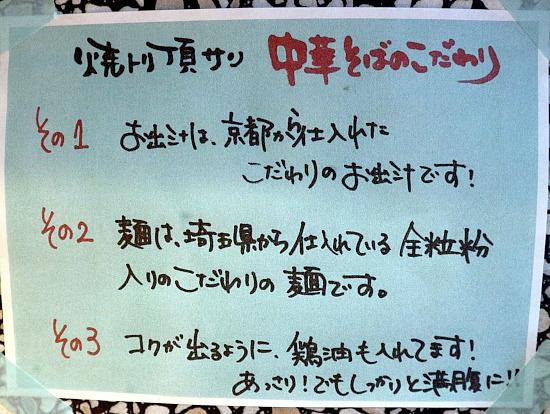 焼トリ頂サン 中華そばのこだわり
その1 お出汁は、京都から仕入れた
こだわりのお出汁です！
その2 麺は、埼玉県から仕入れている 全粒粉
入りのこだわりの麺です。
その3 コクが出るように、鶏油も入れてます！
あっさり！でもしっかりと満腹に！！